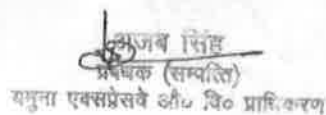 अजब सिंह
प्रबंधक (सम्पत्ति)
यमुना एक्सप्रेसवे औ० वि० प्राधिकरण